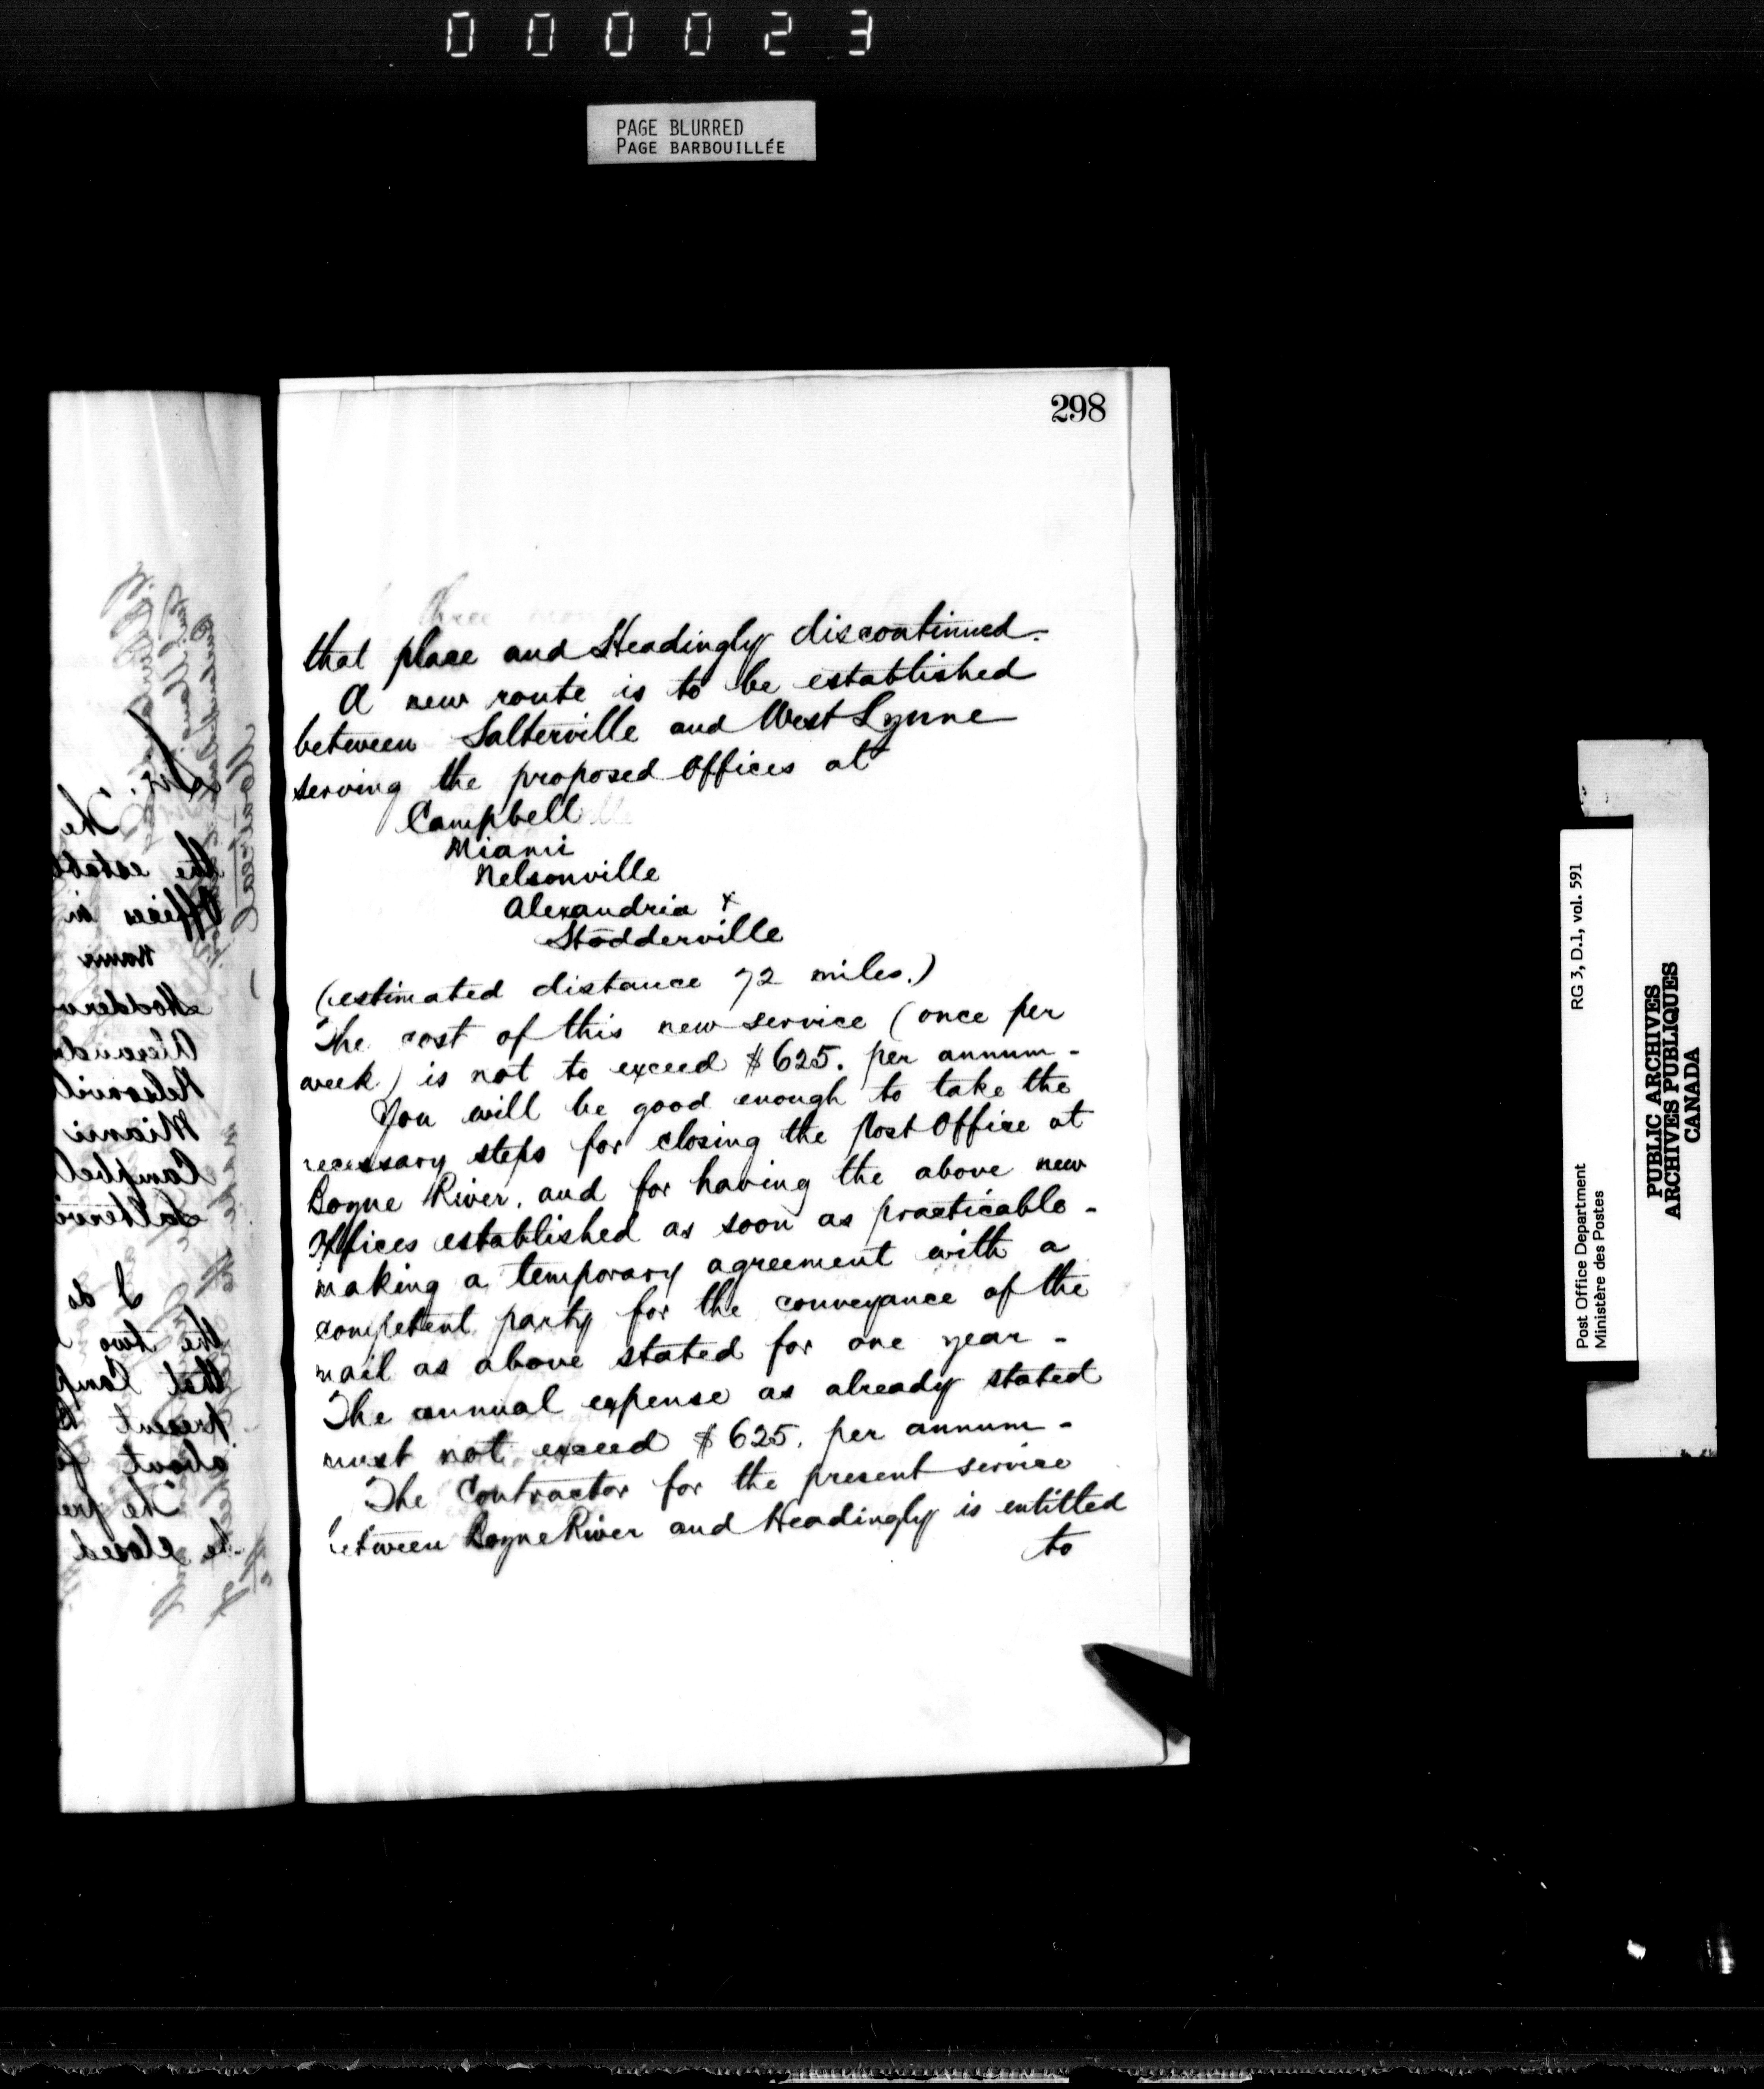 000023
PAGE BLURRED
PAGE BARBOUILLÉE
298
that place and Headingly discontinued.
A new route is to be established
between Salterville and West Lynne
serving the proposed Offices at
Campbell
Miami
Nelsonville
Alexandria &
Stodderville
(estimated distance 72 miles.)
The cost of this new service (once per
week) is not to exceed $625. per annum -
You will be good enough to take the
necessary steps for closing the Post Office at
Boyne River, and for having the above new
Offices established as soon as practicable -
making a temporary agreement with a
competent party for the conveyance of the
mail as above stated for one year -
The annual expense as already stated
must not exceed $625. per annum -
The Contractor for the present service
between Boyne River and Headingly is entitled
to
Post Office Department
Ministère des Postes
RG 3, D.1, vol. 591
PUBLIC ARCHIVES
ARCHIVES PUBLIQUES
CANADA